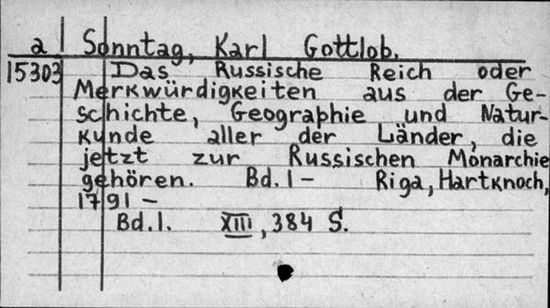 a Sonntag, Karl Gottlob.
15303 Das Russische Reich oder
Merkwürdigkeiten aus der Ge-
schichte, Geographie und Natur-
kunde aller der Länder, die
jetzt zur Russischen Monarchie
gehören. Bd. 1 - Riga, Hartknoch,
1791 -
Bd. 1. XIII, 384 S.